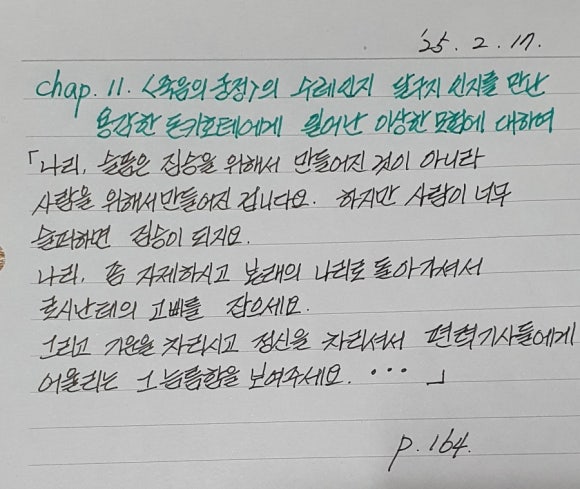 '25. 2. 17.
chap. 11. <죽음의 궁정>의 수레인지 달구지인지를 만난
용감한 돈키호테에게 일어난 이상한 모험에 대하여
「나리, 슬픔은 짐승을 위해서 만들어진 것이 아니라
사람을 위해서 만들어진 겁니다요. 하지만 사람이 너무
슬퍼하면 짐승이 되지요.
나리, 좀 자제하시고 본래의 나리로 돌아가셔서
로시난테의 고삐를 잡으세요.
그리고 기운을 차리시고 정신을 차리셔서 편력기사들에게
어울리는 그 늠름함을 보여주세요. ··· 」
p. 164.